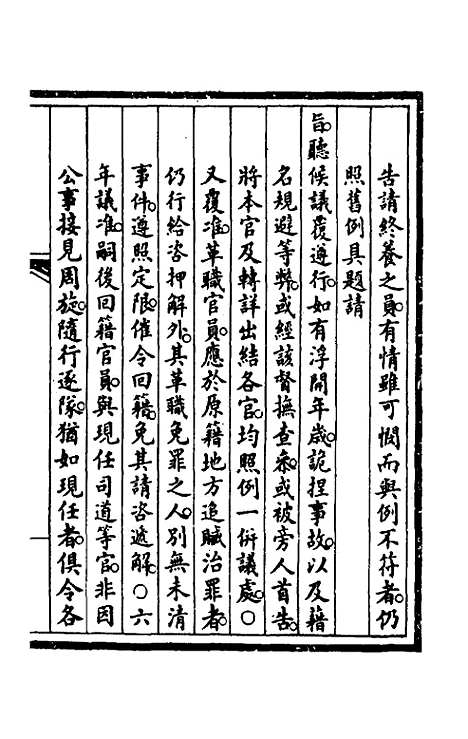 告請終養之員有情雖可憫而與例不符者仍
照舊例具題請
旨聽候議覆遵行如有浮開年歲詭捏事故以及藉
名規避等弊或經該督撫查叅或被旁人首告
將本官及轉詳出結各官均照例一併議處○
又覆准革職官員應於原籍地方追贓治罪者
仍行給咨押解外其革職免罪之人別無未清
事件遵照定限催令回籍免其請咨遞解○六
年議准嗣後回籍官員與現任司道等官非因
公事接見周旋隨行逐隊猶如現任者俱令各